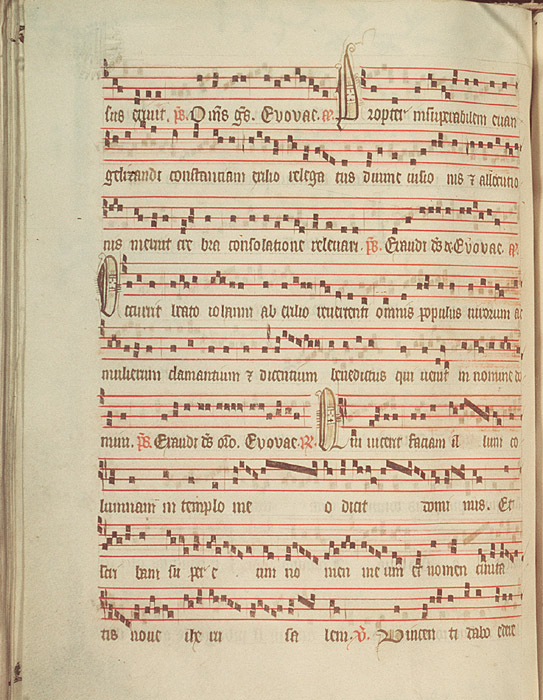 sus eruit. ps. Oms gs. Evovae. a. Propter insuperabilem euan
gelizandi constanciam exilio relega tus diuine uisio nis & allocutio
nis meruit cre bra consolatione releuari. ps. Exaudi ds Evovae. a.
Occurrit beato iohanni ab exilio reuertenti omnis populus uirorum ac
mulierum clamantium & dicentium benedictus qui uenit in nomine do
mini. ps. Exaudi ds oro. Evovae. R. Qui uicerit faciam il lum co
lumnam in templo me o dicit domi nus. Et
scri bam su per e um no men me um et nomen ciuita
tis noue ihe ru sa lem. V. Vincen ti dabo edere